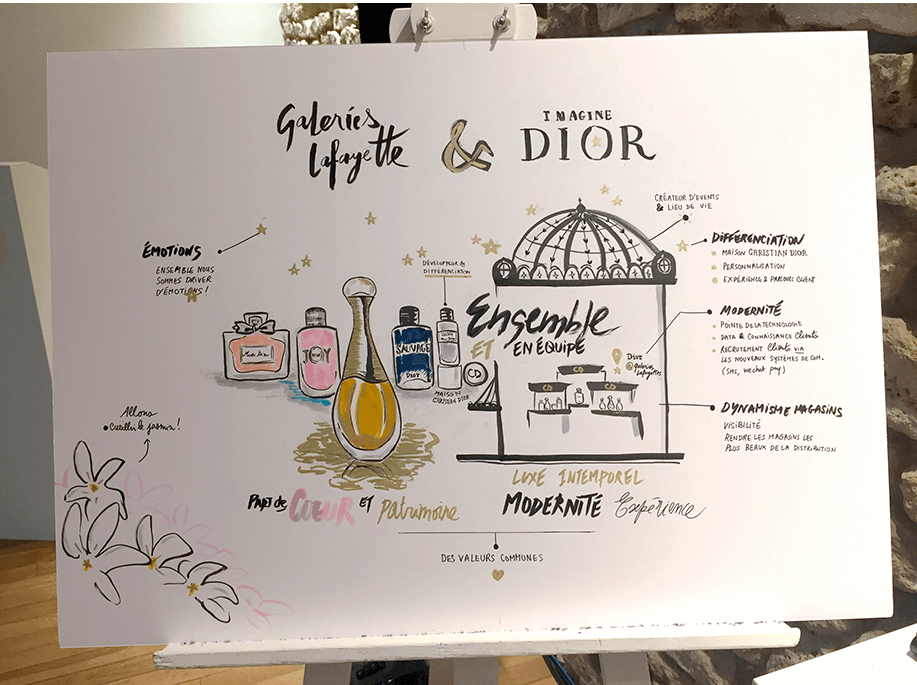 Galeries
Lafayette
&
IMAGINE
DIOR
CRÉATEUR D'EVENTS
& LIEU DE VIE
ÉMOTIONS
ENSEMBLE NOUS
SOMMES DRIVER
D'ÉMOTIONS !
DÉVELOPPEUR de
DIFFÉRENCIATION
DIFFÉRENCIATION
MAISON CHRISTIAN DIOR
PERSONNALISATION
EXPÉRIENCE & PARCOURS CLIENT
Miss Dior
JOY
SAUVAGE
DIOR
CD
MAISON
CHRISTIAN DIOR
Ensemble
ET
EN ÉQUIPE
Dior
@galeries
Lafayette
CD
CD
CD
MODERNITÉ
POINTE DE LA TECHNOLOGIE
DATA & CONNAISSANCE Clients
RECRUTEMENT Clients VIA
LES NOUVEAUX SYSTÈMES DE COM.
(SMS, wechat pay)
DYNAMISME MAGASINS
VISIBILITÉ
RENDRE LES MAGASINS LES
PLUS BEAUX DE LA DISTRIBUTION
Allons
cueillir le jasmin !
LUXE INTEMPOREL
PART de CŒUR ET Patrimoine
MODERNITÉ Expérience
DES VALEURS COMMUNES